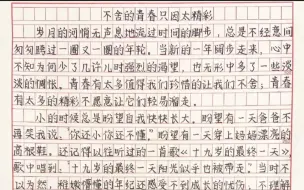 不舍的青春只因太精彩
岁月的河悄无声息地流过时间的脚步，总是不经意间
匆匆跨过一圈又一圈的年轮。当新的一年阔步走来，心中
不知为何少了几许儿时强烈的渴望，也无形中多了一些淡
淡的惆怅。青春有太多值得我们珍惜的让我们不舍；青春
有太多的精彩不愿意让它们轻易溜走。
小的时候总是盼望自我快快长大。盼望有一天爸爸不
再笑我说，“你还小你还不懂”；盼望有一天穿上妈妈漂亮的
高根鞋。还记得以往听过的一首歌《十九岁的最终一天》，
歌中唱到，“十九岁的最终一天阳光似乎也被带走。”当时不
以为然，稚嫩懵懂的年纪还感受不到成长的忧伤，不理解